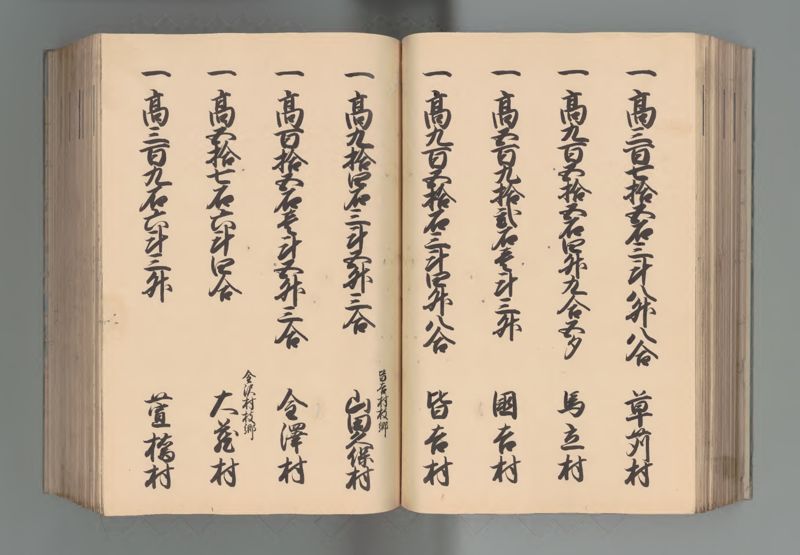 一 高三百七拾五石三斗八升八合 草苅村
一 高九百五拾五石四升九合五夕 馬立村
一 高五百九拾弐石壱斗三升 國吉村
一 高九百五拾石三斗四升八合 皆吉村
皆吉村枝郷
一 高九拾四石三斗五升三合 山田久保村
一 高百拾五石壱斗五升三合 今澤村
今沢村枝郷
一 高五拾七石六斗四合 大蔵村
一 高三百九石六斗三升 萱橋村